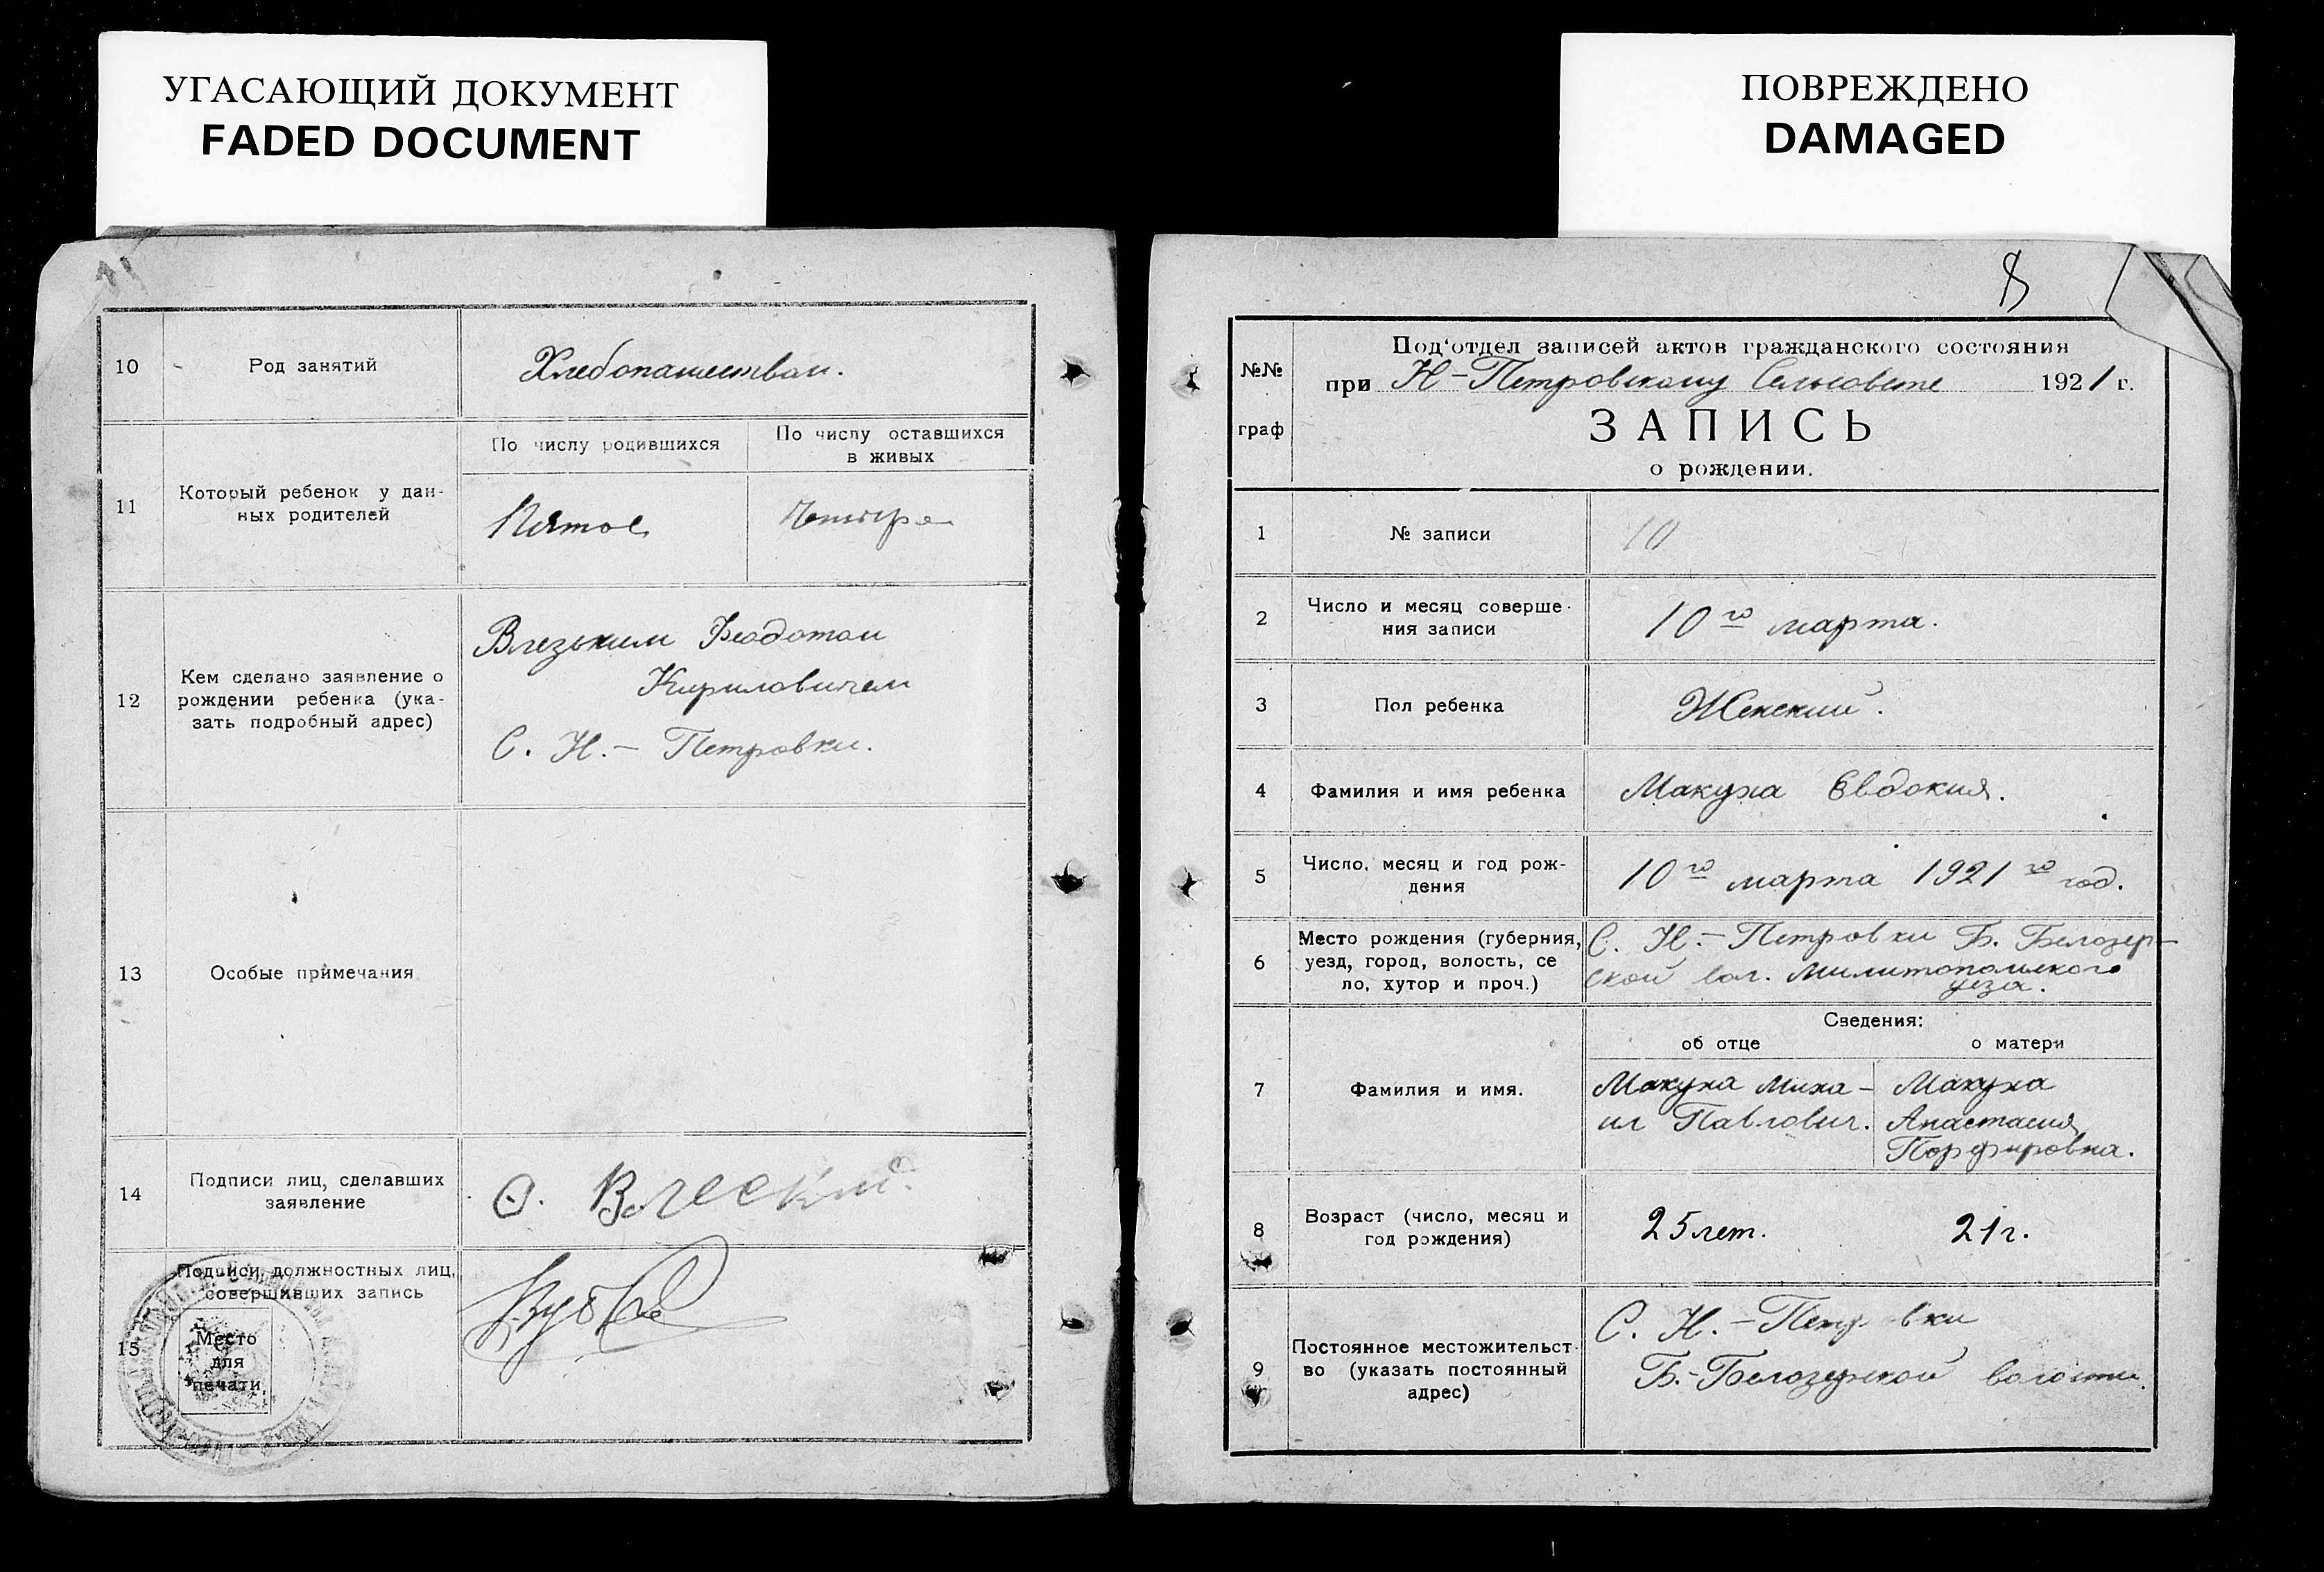 УГАСАЮЩИЙ ДОКУМЕНТ
FADED DOCUMENT
ПОВРЕЖДЕНО
DAMAGED
10
Род занятий
Хлебопашеством.
11
Который ребенок у дан-
ных родителей
По числу родившихся
Пятое
По числу оставшихся
в живых
12
Кем сделано заявление о
рождении ребенка (ука-
зать подробный адрес)
Феодотом
Кириловичем
С. Н.- Петровки.
13
Особые примечания
14
Подписи лиц, сделавших
заявление
Ѳ.
15
Подписи должностных лиц,
совершивших запись
Место
для
печати
8
№№
граф
Под'отдел записей актов гражданского состояния
при Н-Петровскому Сельсовете 1921 г.
ЗАПИСЬ
о рождении.
1
№ записи
10
2
Число и месяц соверше-
ния записи
10го марта.
3
Пол ребенка
Женский.
4
Фамилия и имя ребенка
Макуха Евдокия.
5
Число, месяц и год рож-
дения
10го марта 1921го год.
6
Место рождения (губерния,
уезд, город, волость, се
ло, хутор и проч.)
С. Н.- Петровки Б. Белозер-
ской вол. Милитопольского
уезда.
Сведения:
об отце
о матери
7
Фамилия и имя.
Макуха Миха-
ил Павлович.
Макуха
Анастасия
Порфировна.
8
Возраст (число, месяц и
год рождения)
25 лет.
21 г.
9
Постоянное местожительст-
во (указать постоянный
адрес)
С. Н.- Петровки
Б.-Белозерской волости.